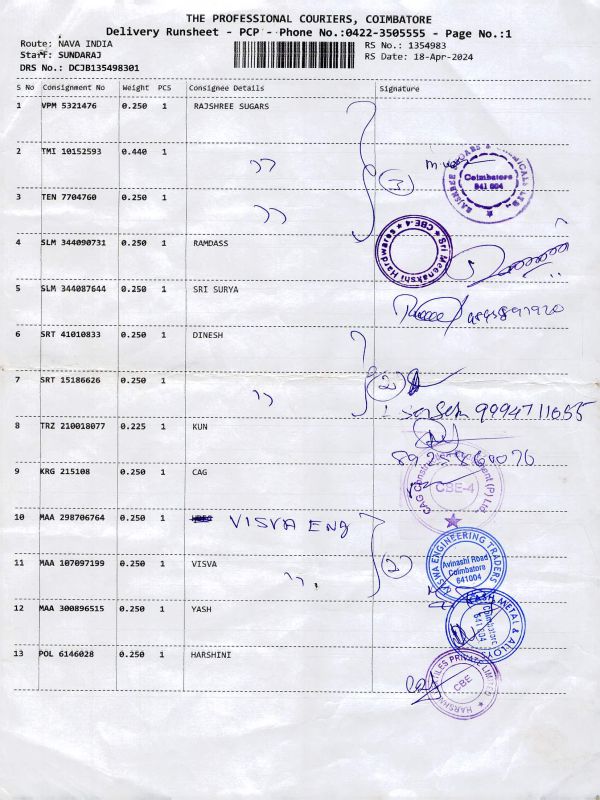 THE PROFESSIONAL COURIERS, COIMBATORE
Delivery Runsheet - PCP - Phone No.:0422-3505555 - Page No.:1
Route: NAVA INDIA RS No.: 1354983
Staff: SUNDARAJ RS Date: 18-Apr-2024
DRS No.: DCJB135498301
S No Consignment No Weight PCS Consignee Details Signature
1 VPM 5321476 0.250 1 RAJSHREE SUGARS
2 TMI 10152593 0.440 1 ,,
Coimbatore 641 004
3 TEN 7704760 0.250 1 ,, 3
4 SLM 344090731 0.250 1 RAMDASS
Sri Meenakshi Hardwares ★ CBE-4 ★
5 SLM 344087644 0.250 1 SRI SURYA
6 SRT 41010833 0.250 1 DINESH
7 SRT 15186626 0.250 1 ,, 2
9994711655
8 TRZ 210018077 0.225 1 KUN
9 KRG 215108 0.250 1 CAG
CBE-4
10 MAA 298706764 0.250 1 VISVA ENG
11 MAA 107097199 0.250 1 VISVA ,, 2
VISWA ENGINEERING TRADERS
Avinashi Road
Coimbatore
641004
12 MAA 300896515 0.250 1 YASH
METAL & ALLOY
Coimbatore
641 004
13 POL 6146028 0.250 1 HARSHINI
PRIVATE LIMITED
CBE